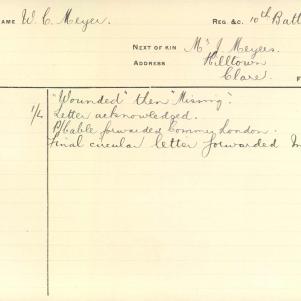 NAME W. C. Meyer. REG &C. 10th Batt
NEXT OF KIN Mrs J. Meyers.
ADDRESS Hilltown
Clare.
"Wounded" then "Missing".
1/4 Letter acknowledged.
P/Cable forwarded Commrs London.
Final circular letter forwarded